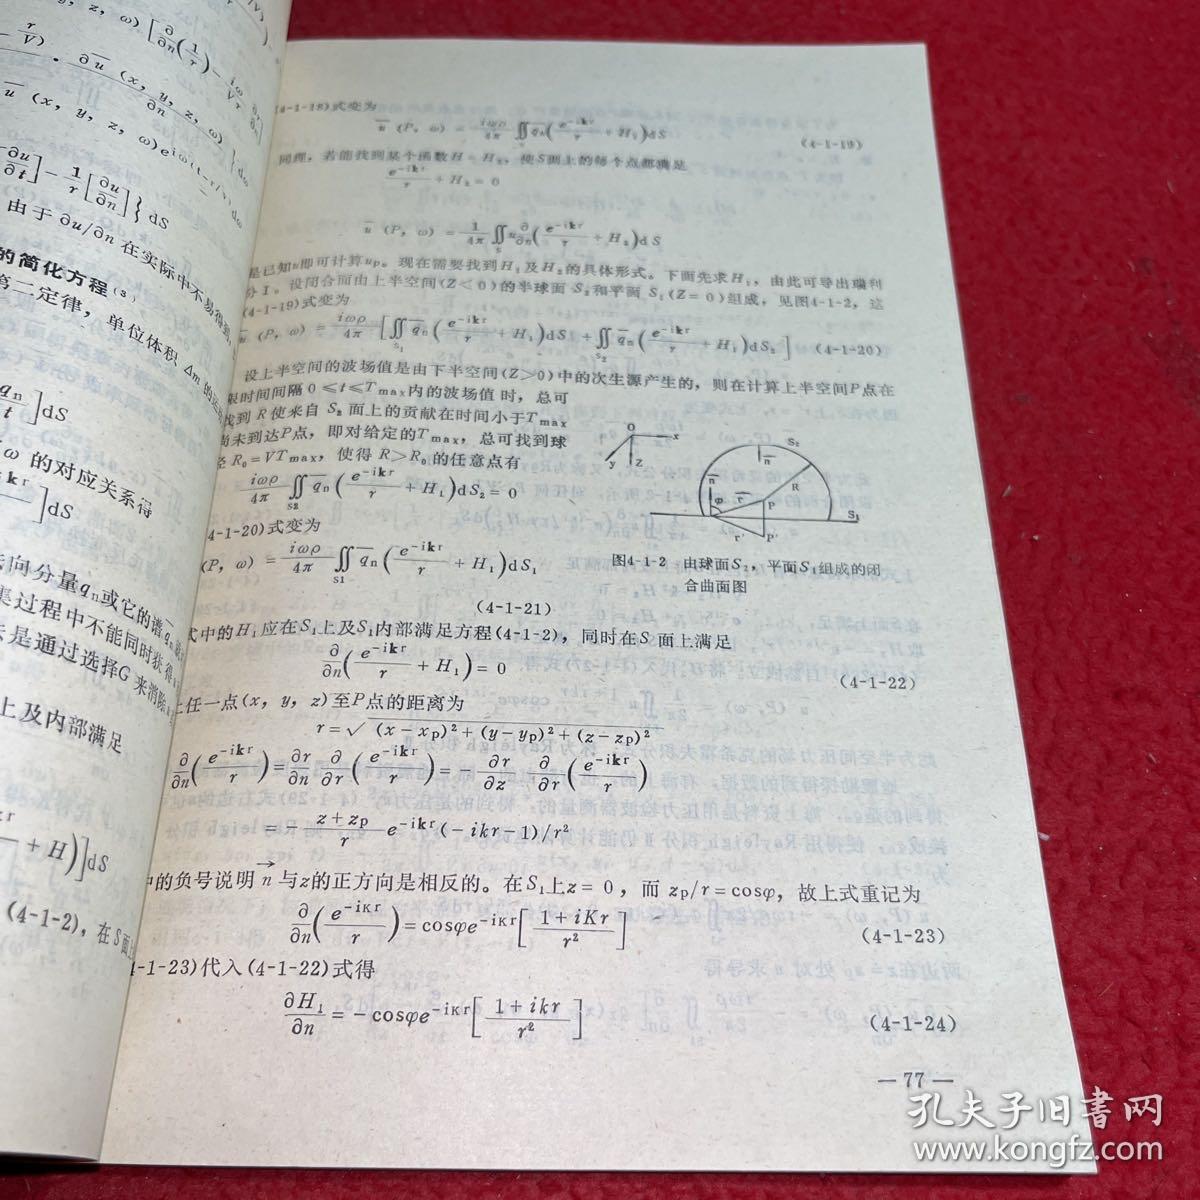 y, z, ω) [∂/∂n(1/r) - iω/Vr ∂r/∂n]
∂ū(x, y, z, ω)/∂n } dω
ū(x, y, z, ω)e^{iω(t-r/V)}dω
∂u/∂t] - 1/r[∂u/∂n]}dS
由于∂u/∂n在实际中不易得到
的简化方程(3)
第二定律，单位体积Δm的
]dS
ω的对应关系得
]dS
法向分量qn或它的谱q̄n
集过程中不能同时获得
是通过选择G来消除
上及内部满足
+H)]dS
(4-1-2)，在S面
(4-1-18)式变为
ū(P, ω) = iωρ/4π ∬q̄n(e^{-ikr}/r + H₁)dS (4-1-19)
同理，若能找到某个函数H=H₂，使S面上的每个点都满足
e^{-ikr}/r + H₂ = 0
ū(P, ω) = 1/4π ∬_S u ∂/∂n(e^{-ikr}/r + H₂)dS
是已知u即可计算u_P。现在需要找到H₁及H₂的具体形式。下面先求H₁，由此可导出瑞利
分Ⅰ。设闭合面由上半空间(Z<0)的半球面S₂和平面S₁(Z=0)组成，见图4-1-2，这
(4-1-19)式变为
ū(P, ω) = iωρ/4π [∬_{S1} q̄n(e^{-ikr}/r + H₁)dS₁ + ∬_{S2} q̄n(e^{-ikr}/r + H₁)dS₂] (4-1-20)
设上半空间的波场值是由下半空间(Z>0)中的次生源产生的，则在计算上半空间P点在
限时间间隔0≤t≤Tmax内的波场值时，总可
找到R使来自S₂面上的贡献在时间小于Tmax
尚未到达P点，即对给定的Tmax，总可找到球
径R₀=VTmax，使得R>R₀的任意点有
iωρ/4π ∬_{S2} q̄n(e^{-ikr}/r + H₁)dS₂ = 0
(4-1-20)式变为
(P, ω) = iωρ/4π ∬_{S1} q̄n(e^{-ikr}/r + H₁)dS₁
(4-1-21)
O x y Z
S₂ n̄ R n̄ φ r̄ P S₁ r' P'
图4-1-2 由球面S₂，平面S₁组成的闭
合曲面图
式中的H₁应在S₁上及S₁内部满足方程(4-1-2)，同时在S面上满足
∂/∂n(e^{-ikr}/r + H₁) = 0 (4-1-22)
上任一点(x, y, z)至P点的距离为
r = √((x-x_P)² + (y-y_P)² + (z-z_P)²)
∂/∂n(e^{-ikr}/r) = ∂r/∂n ∂/∂r(e^{-ikr}/r) = -∂r/∂z ∂/∂r(e^{-ikr}/r)
= - (z+z_P)/r e^{-ikr}(-ikr-1)/r²
中的负号说明n⃗与z的正方向是相反的。在S₁上z=0，而z_P/r=cosφ，故上式重记为
∂/∂n(e^{-iKr}/r) = cosφe^{-iKr}[(1+iKr)/r²] (4-1-23)
4-1-23)代入(4-1-22)式得
∂H₁/∂n = -cosφe^{-iKr}[(1+ikr)/r²] (4-1-24)
— 77 —
孔夫子旧书网
www.kongfz.com